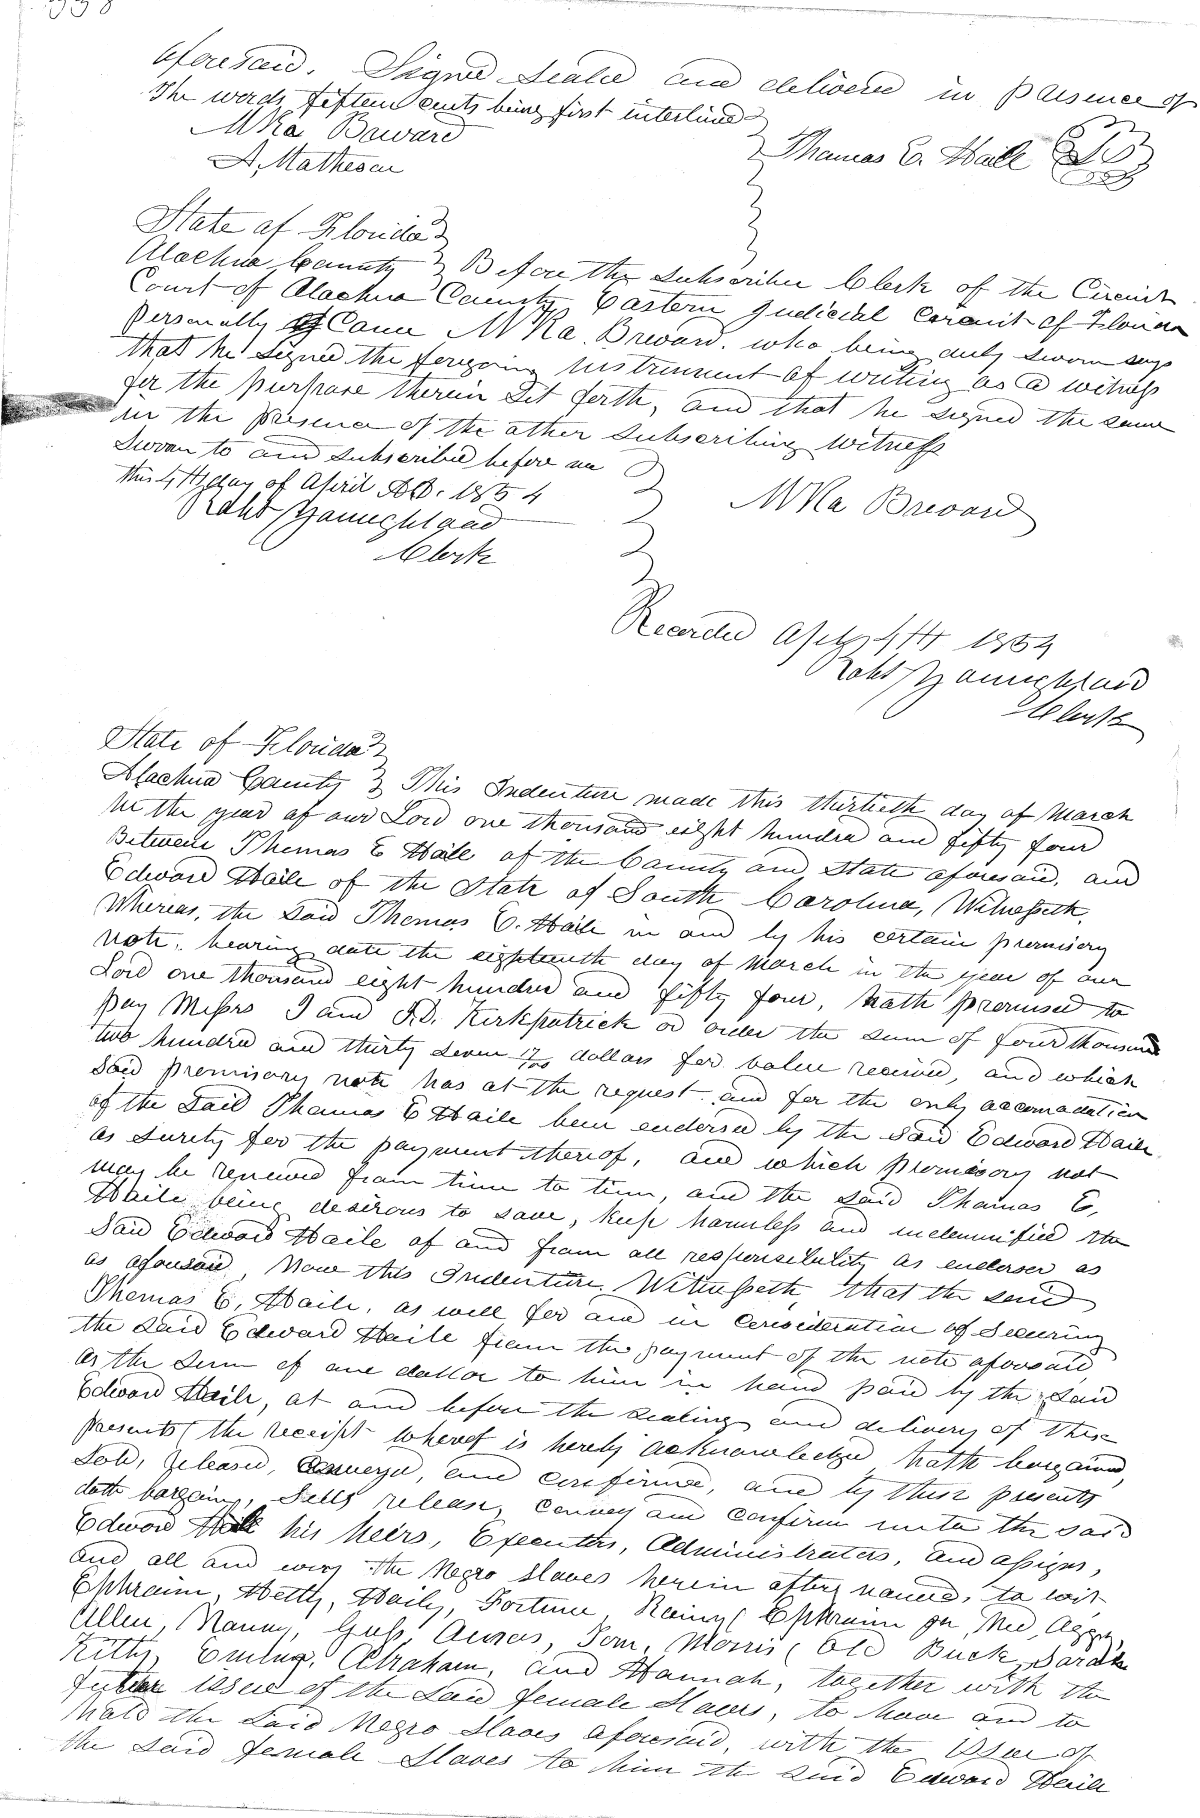 338
aforesaid. Signed Sealed and delivered in presence of
The words fifteen cents being first interlined
McKa Brevard
Thomas E. Haile
A. Matheson
State of Florida
Alachua County Before the subscriber Clerk of the Circuit
Court of Alachua County Eastern Judicial Circuit of Florida
personally Came McKa. Brevard. who being duly sworn says
that he signed the foregoing instrument of writing as a witness
for the purpose therein Set forth, and that he signed the same
in the presence of the other subscribing witness
Sworn to and subscribed before me
this 4th day of April AD. 1854
McKa Brevard
Robt
Clerk
Recorded April 4th 1854
Robt
Clerk
State of Florida
Alachua County This Indenture made this thirtieth day of March
in the year of our Lord one thousand eight hundred and fifty four
Between Thomas E Haile of the County and State aforesaid, and
Edward Haile of the State of South Carolina, Witnesseth,
Whereas, the said Thomas E. Haile in and by his certain promisory
note, bearing date the eighteenth day of March in the year of our
Lord one thousand eight hundred and fifty four, hath promised to
pay Messrs J and J.D. Kirkpatrick or order the sum of four thousand
two hundred and thirty seven 17/100 dollars for value received, and which
said promisory note has at the request and for the only accomodation
of the Said Thomas E Haile been endorsed by the said Edward Haile
as surety for the payment thereof, and which promisory not
may be renewed from time to time, and the said Thomas E,
Haile being desirous to save, keep harmless and indemnified the
Said Edward Haile of and from all responsibility as endorser as
as aforesaid, Now this Indenture Witnesseth, that the said
Thomas E, Haile, as well for and in consideration of Securing
the said Edward Haile from the payment of the note aforesaid,
as the sum of one dollar to him in hand paid by the Said
Edward Haile, at and before the sealing and delivery of these
presents (the receipt whereof is hereby acknowledged hath bargained,
Sold, released, Conveyed, and confirmed, and by these presents
doth bargain, Sells release, convey and confirm unto the said
Edward Haile his heirs, Executors, Administrators, and assigns,
and all and every the Negro slaves herein after named, to wit
Ephraim, Hetty, Haily, Fortune, Rainy (Ephraim jr, Ned, Aggy,
Allen, Nanny, Gus, Tom, Morris (Old Buck, Sarah
Kitty, Emily, Abraham, and Hannah, together with the
future issue of the said female Slaves, to have and to
hold the Said Negro Slaves aforesaid, with the issue of
the said female Slaves to him the said Edward Haile